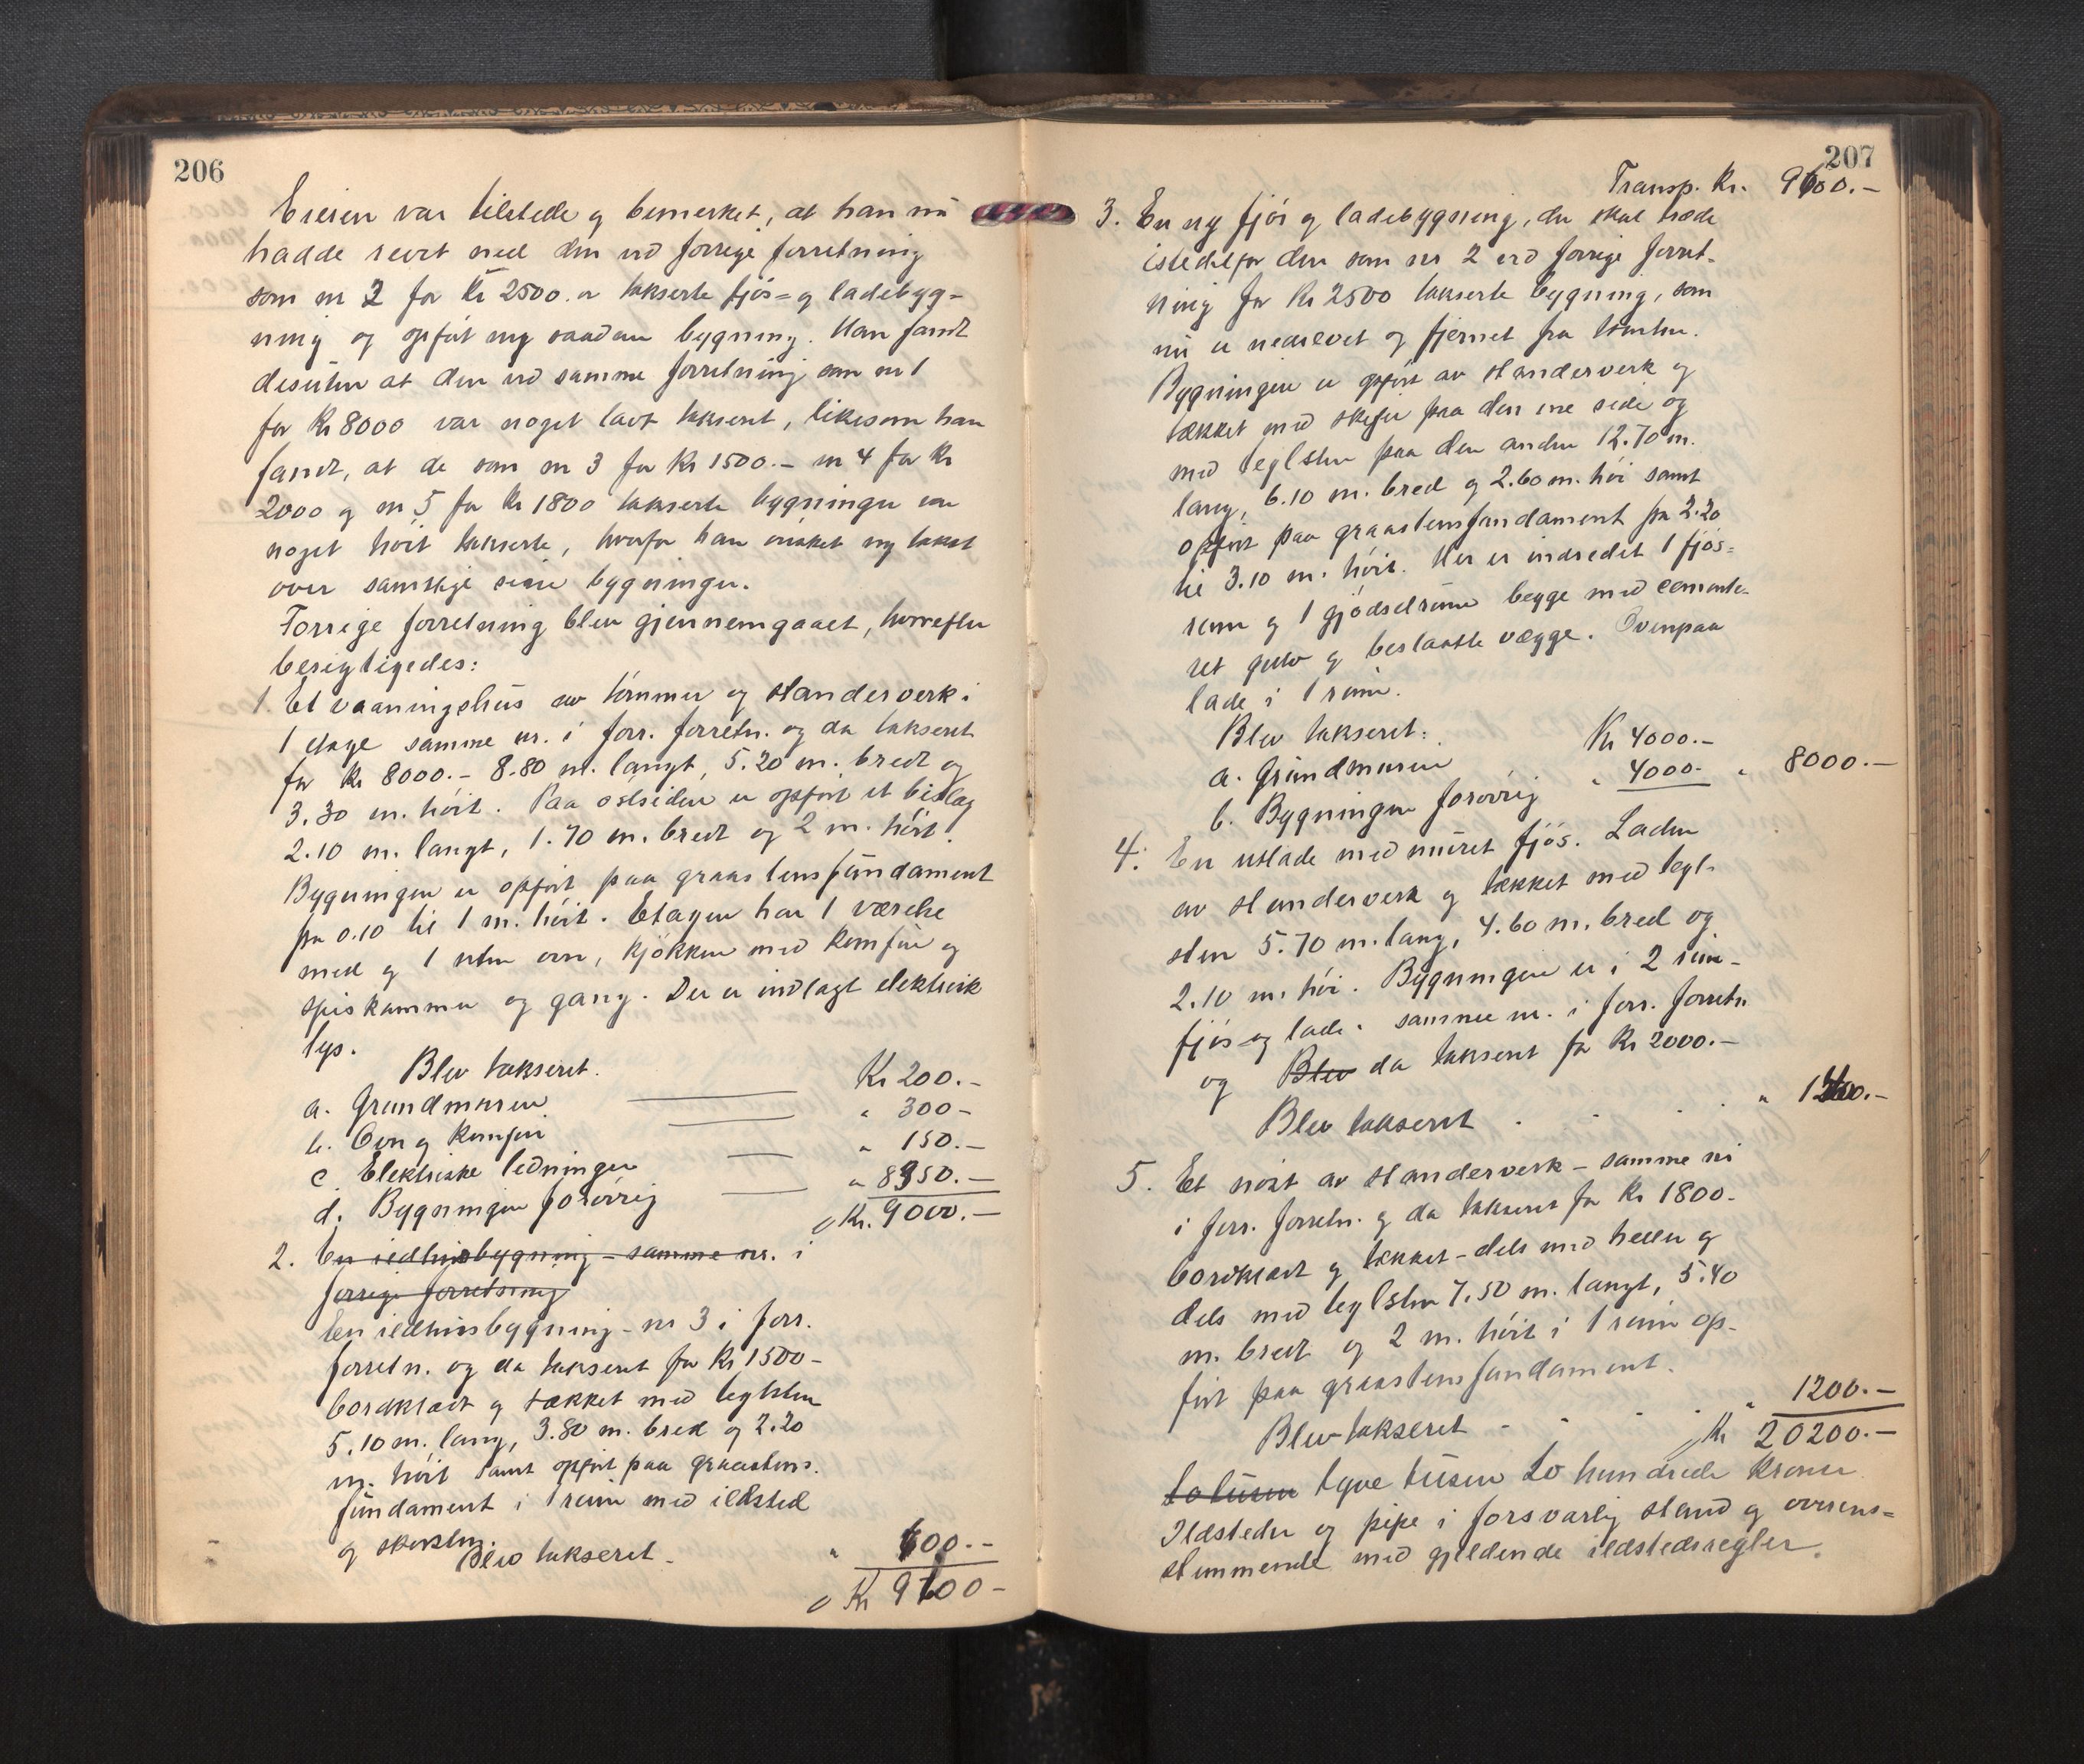 206
Eieren var tilstede og bemerket, at han nu
hadde revet ned den ved forrige forretning
som nr 2 for Kr 2500.- takserte fjøs= og ladebyg-
ning og opført ny saadan bygning. Han fandt
desuten at den ved samme forretning som nr 1
for Kr 8000 var noget lavt taksert, likesom han
fandt, at de som nr 3 for Kr 1500.- nr 4 for Kr
2000 og nr 5 for Kr 1800 takserte bygninger var
noget høit takserte, hvorfor han ønsket ny takst
over samtlige sine bygninger.
Forrige forretning blev gjennemgaaet, hvorefter
berigtigedes:
1. Et vaaningshus av tømmer og standerverk i
1 etage samme nr. i forr. forretn. og da taksert
for Kr 8000.- 8.80 m. langt, 5.20 m. bredt og
3.30 m. høit. Paa østsiden er opført et bislag
2.10 m. langt, 1.70 m. bredt og 2 m. høit.
Bygningen er opført paa graastensfundament
fra 0.10 til 1 m. høit. Etagen har 1 værelse
med og 1 uten ovn, kjøkken med komfur og
spiskammer og gang. Der er indlagt elektrisk
lys.
Blev taksert.
a. Grundmuren Kr 200.-
b. Ovn og komfur " 300-
c. Elektriske ledninger " 150.-
d. Bygningen forøvrig " 8350.-
Kr. 9000.-
2. En ildhusbygning - samme nr. i
forrige forretning
En ildhusbygning - nr 3 i forr.
forretn. og da taksert for Kr 1500-
bordklædt og tækket med teglsten
5.10 m. lang, 3.80 m. bred og 2.20
m. høit samt opført paa graastens-
fundament i 1 rum med ildsted
og skorsten.
Blev taksert - " 600.-
Kr 9600-
207
Transp. Kr. 9600.-
3. En ny fjøs og ladebygning, der skal træde
istedetfor den som nr 2 ved forrige forret-
ning for Kr 2500 takserte bygning, som
nu er nedrevet og fjernet fra tomten.
Bygningen er opført av standerverk og
tækket med skifer paa den ene side og
med teglsten paa den anden 12.70 m.
lang, 6.10 m. bred og 2.60 m. høi samt
opført paa graastensfundament fra 2.20
til 3.10 m. høit. Her er indredet 1 fjøs=
rum og 1 gjødselrum begge med cemente-
ret gulv og beslaatte vægge. Ovenpaa
lade i 1 rum.
Blev taksert:
a. Grundmuren Kr 4000.-
b. Bygningen forøvrig " 4000.- " 8000.-
4. En utlade med muret fjøs. Laden
av standerverk og tækket med tegl-
sten 5.70 m. lang, 4.60 m. bred og
2.10 m. høi. Bygningen er i 2 rum-
fjøs og lade. samme nr. i forr. forretn
og Blev da taksert for Kr 2000.-
Blev taksert - - - " 1400.-
5. Et nøst av standerverk - samme nr
i forr. forretn. og da taksert for Kr 1800-
bordklædt og tækket - dels med heller og
dels med teglsten 7.50 m. langt, 5.40
m. bredt og 2 m. høit i 1 rum op-
ført paa graastensfundament.
Blev taksert - - - " 1200.-
Kr 20200.-
totusen tyve tusen to hundrede kroner
Ildsteder og pipe i forsvarlig stand og overens=
stemmende med gjeldende ildstedsregler.